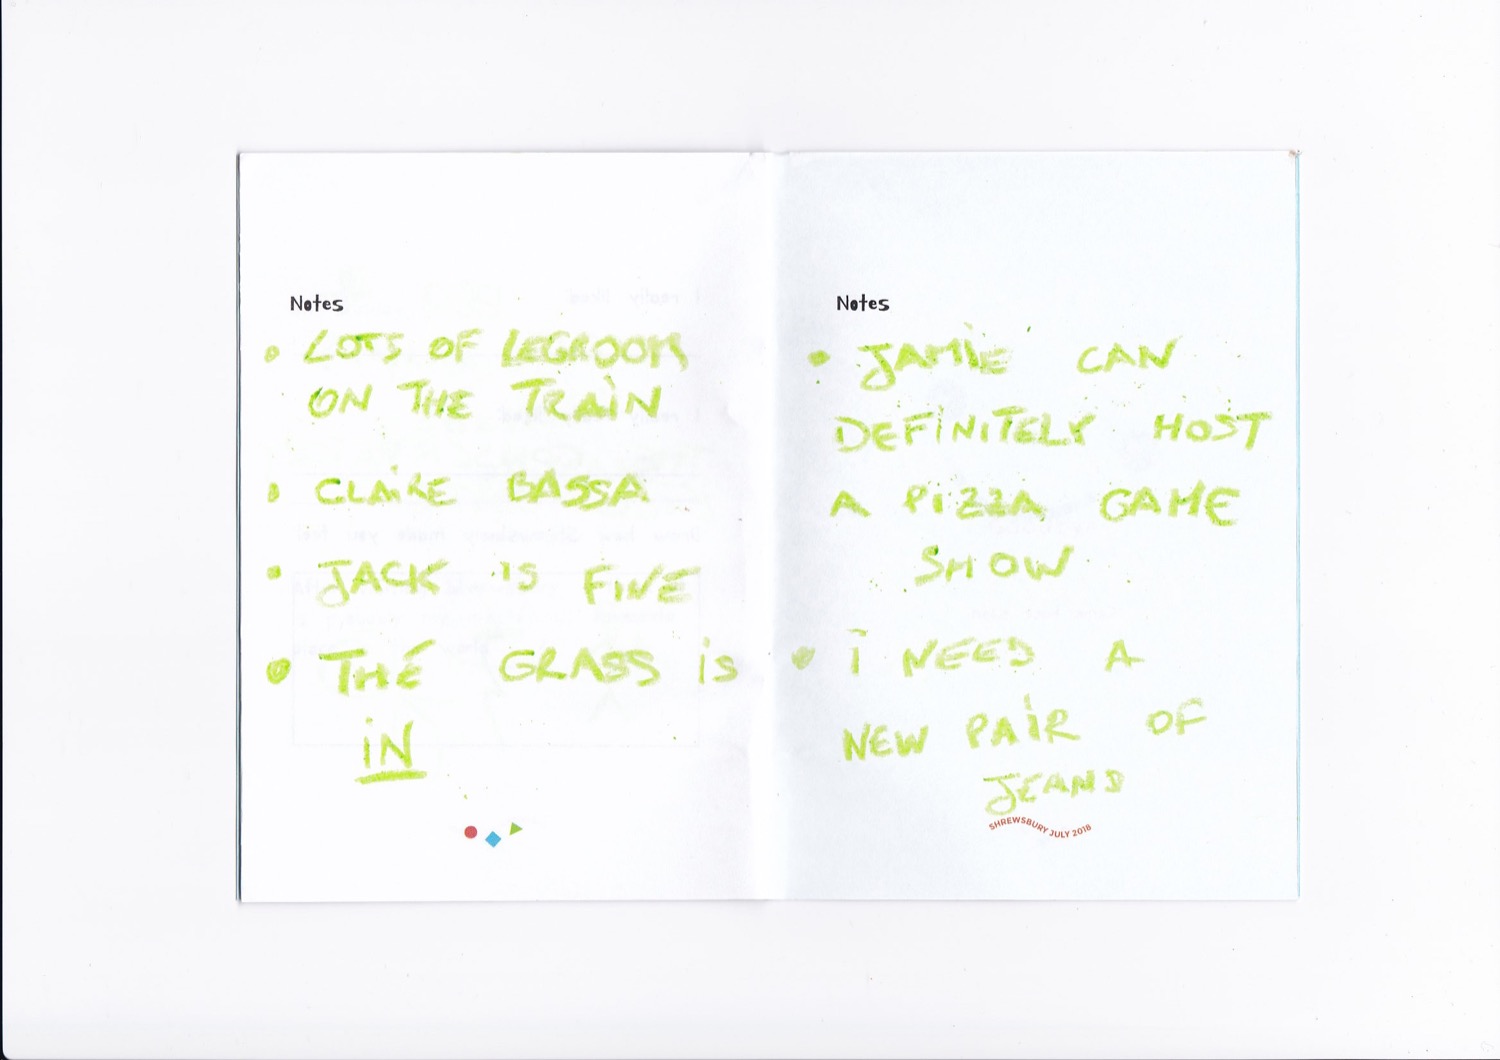 Notes
• LOTS OF LEGROOM
ON THE TRAIN
• CLAIRE BASSA
• JACK IS FINE
• THE GRASS iS
iN
Notes
• JAMiE CAN
DEFiNiTELY HOST
A PiZZA GAME
SHOW
• i NEED A
NEW PAiR OF
JEANS
SHREWSBURY JULY 2018